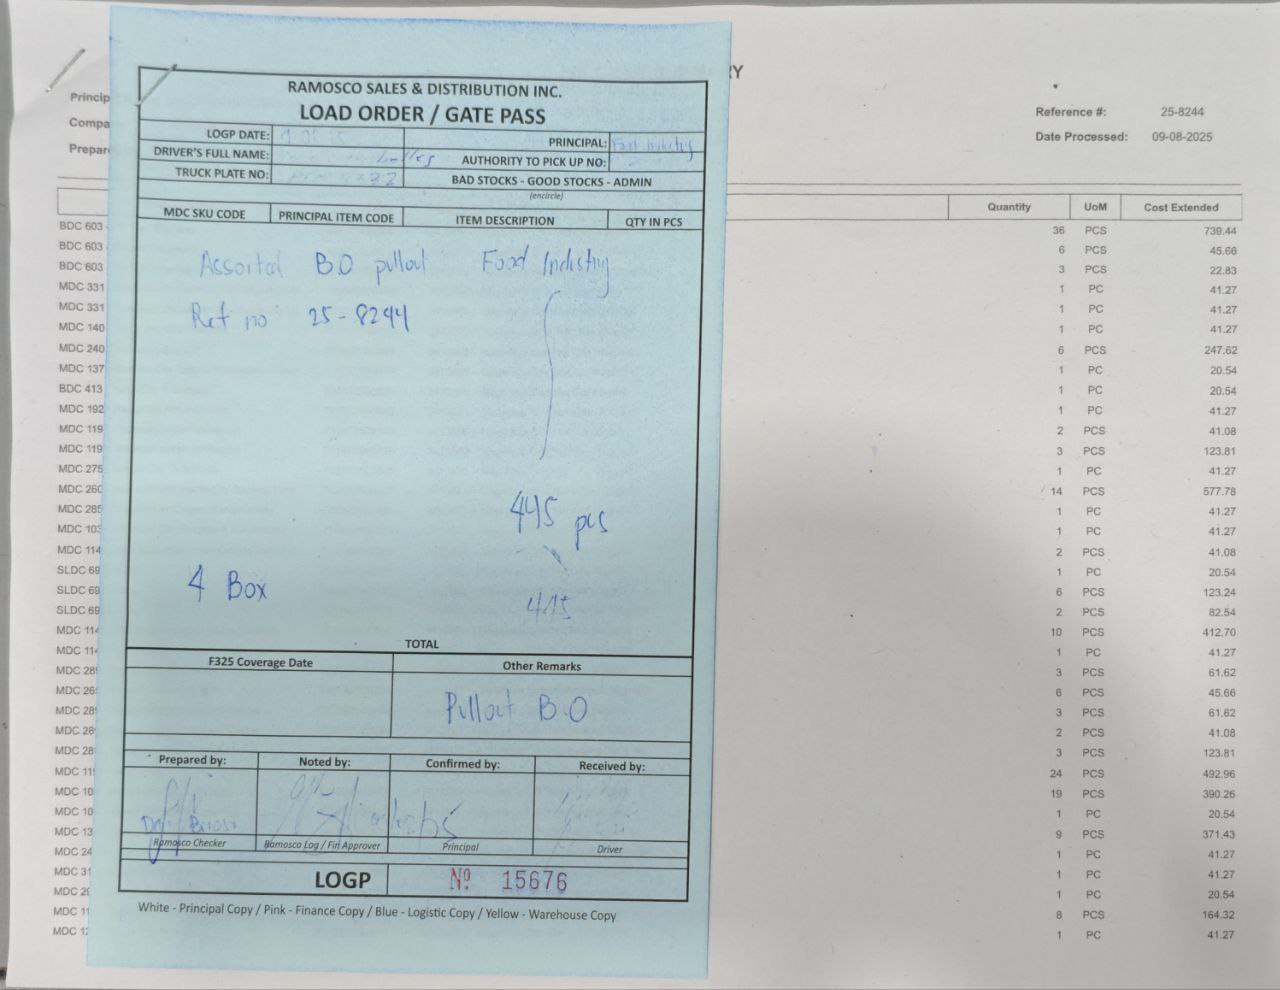 RAMOSCO SALES & DISTRIBUTION INC.
LOAD ORDER / GATE PASS
LOGP DATE:
PRINCIPAL: Food Industry
DRIVER'S FULL NAME:
AUTHORITY TO PICK UP NO:
TRUCK PLATE NO:
BAD STOCKS - GOOD STOCKS - ADMIN
(encircle)
MDC SKU CODE PRINCIPAL ITEM CODE ITEM DESCRIPTION QTY IN PCS
Assorted B.O pullout Food Industry
Ref no 25-8244
445 pcs
4 Box
TOTAL
F325 Coverage Date Other Remarks
Pullout B.O
Prepared by: Noted by: Confirmed by: Received by:
Ramosco Checker Ramosco Log / Fin Approver Principal Driver
LOGP Nº 15676
White - Principal Copy / Pink - Finance Copy / Blue - Logistic Copy / Yellow - Warehouse Copy
RY
Princip
Compa
Prepar
Reference #: 25-8244
Date Processed: 09-08-2025
Quantity UoM Cost Extended
BDC 603 36 PCS 739.44
BDC 603 6 PCS 45.66
BDC 603 3 PCS 22.83
MDC 331 1 PC 41.27
MDC 331 1 PC 41.27
MDC 140 1 PC 41.27
MDC 240 6 PCS 247.62
MDC 137 1 PC 20.54
BDC 413 1 PC 20.54
MDC 192 1 PC 41.27
MDC 119 2 PCS 41.08
MDC 119 3 PCS 123.81
MDC 275 1 PC 41.27
MDC 260 14 PCS 577.78
MDC 285 1 PC 41.27
MDC 103 1 PC 41.27
MDC 114 2 PCS 41.08
SLDC 69 1 PC 20.54
SLDC 69 6 PCS 123.24
SLDC 69 2 PCS 82.54
MDC 114 10 PCS 412.70
MDC 114 1 PC 41.27
MDC 28 3 PCS 61.62
MDC 26 6 PCS 45.66
MDC 28 3 PCS 61.62
MDC 28 2 PCS 41.08
MDC 28 3 PCS 123.81
MDC 11 24 PCS 492.96
MDC 10 19 PCS 390.26
MDC 10 1 PC 20.54
MDC 13 9 PCS 371.43
MDC 24 1 PC 41.27
MDC 31 1 PC 41.27
MDC 2 1 PC 20.54
MDC 1 8 PCS 164.32
MDC 1 1 PC 41.27